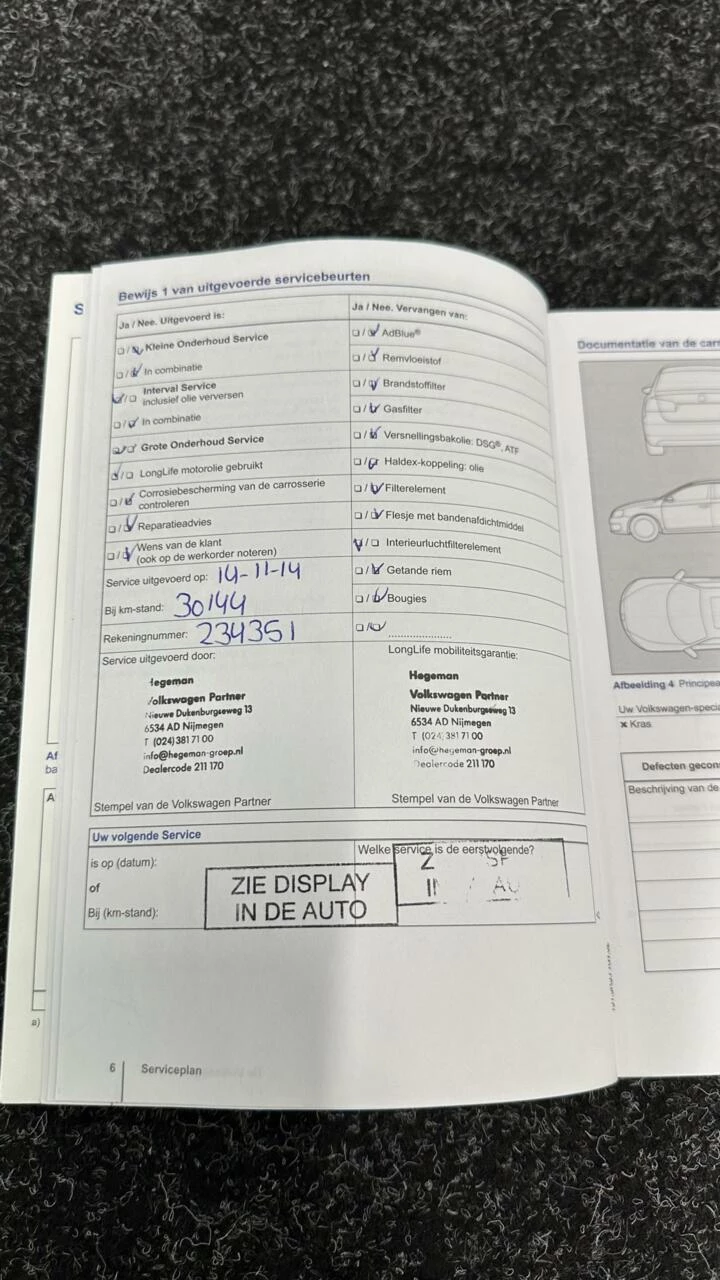 S
Bewijs 1 van uitgevoerde servicebeurten
Ja / Nee. Uitgevoerd is:
Kleine Onderhoud Service
In combinatie
Interval Service
inclusief olie verversen
In combinatie
Grote Onderhoud Service
LongLife motorolie gebruikt
Corrosiebescherming van de carrosserie
controleren
Reparatieadvies
Wens van de klant
(ook op de werkorder noteren)
Service uitgevoerd op: 14-11-14
Bij km-stand: 30144
Rekeningnummer: 234351
Service uitgevoerd door:
Hegeman
Volkswagen Partner
Nieuwe Dukenburgseweg 13
6534 AD Nijmegen
T (024) 381 71 00
info@hegeman-groep.nl
Dealercode 211 170
Stempel van de Volkswagen Partner
Ja / Nee. Vervangen van:
AdBlue®
Remvloeistof
Brandstoffilter
Gasfilter
Versnellingsbakolie: DSG®, ATF
Haldex-koppeling: olie
Filterelement
Flesje met bandenafdichtmiddel
Interieurluchtfilterelement
Getande riem
Bougies
LongLife mobiliteitsgarantie:
Hegeman
Volkswagen Partner
Nieuwe Dukenburgseweg 13
6534 AD Nijmegen
T (024) 381 71 00
info@hegeman-groep.nl
Dealercode 211 170
Stempel van de Volkswagen Partner
Uw volgende Service
is op (datum):
of
Bij (km-stand):
Welke service is de eerstvolgende?
ZIE DISPLAY
IN DE AUTO
6 Serviceplan
Af
ba
A
a)
Documentatie van de carr
Afbeelding 4 Principea
Uw Volkswagen-specia
x Kras
Defecten gecon
Beschrijving van de